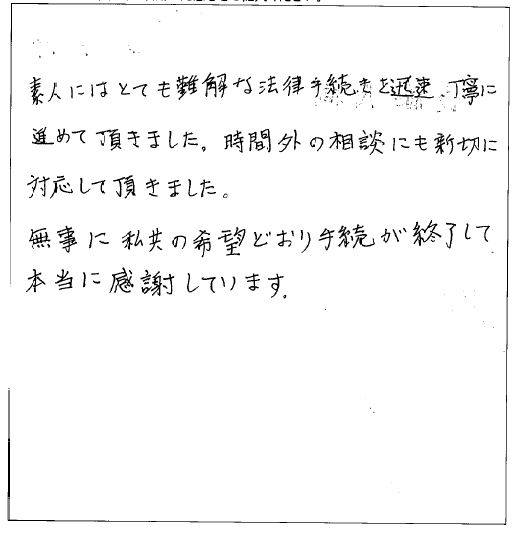 素人にはとても難解な法律手続きを迅速、丁寧に
進めて頂きました。時間外の相談にも新切に
対応して頂きました。
無事に私共の希望どおり手続が終了して
本当に感謝しています。